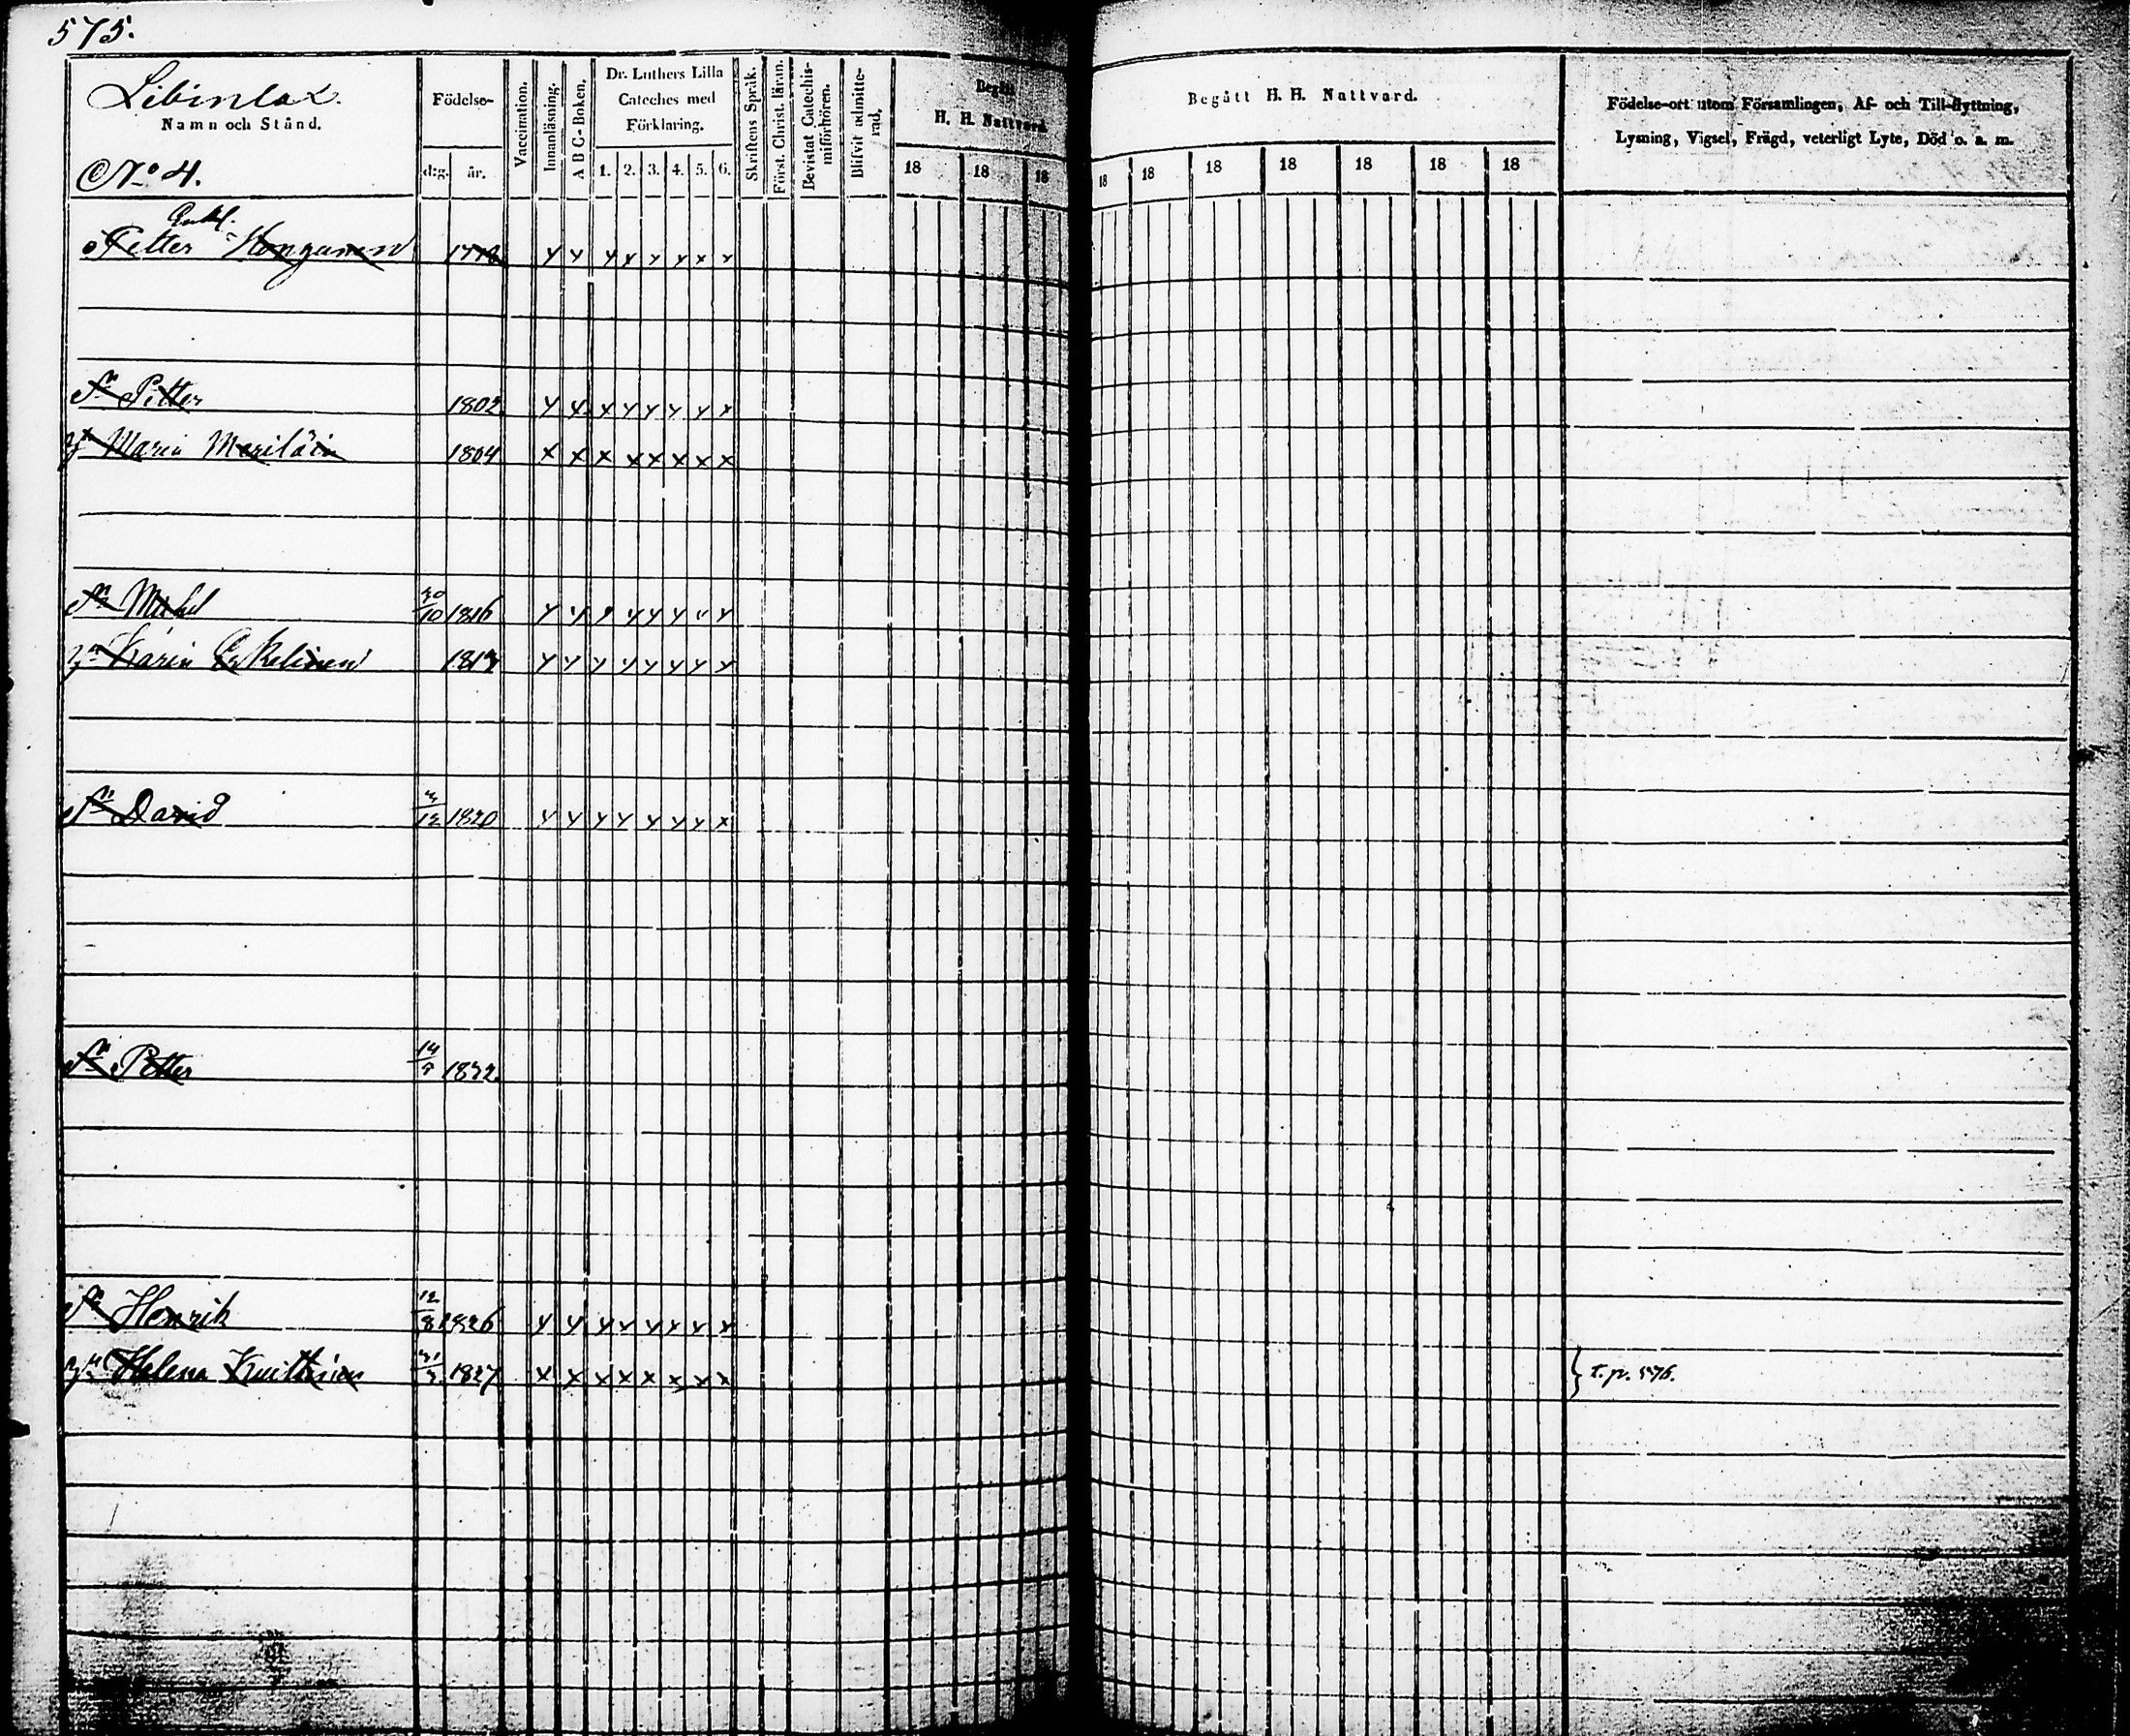 575.
Libinlax.
Namn och Stånd.
No 4.
Födelse-
d:g. år.
Vaccination.
Innanläsning.
A B C-Boken.
Dr. Luthers Lilla
Cateches med
Förklaring.
1. 2. 3. 4. 5. 6.
Skriftens Språk.
Först. Christ. läran.
Bevistat Catechis-
miförhören.
Blifvit admitte-
rad.
Begått
H. H. Nattvard
18 18 18
Begått H. H. Nattvard.
18 18 18 18 18 18 18
Födelse-ort utom Församlingen, Af- och Till-flyttning,
Lysning, Vigsel, Frägd, veterligt Lyte, Död o. a. m.
Enkl.
Petter Honganen
Sn Petter 1802 y y x y y y y x
Maria Meriläin 1804 x x x x x x x x
Sn Mickel 30/10 1816
Karin 1817 y y y y y y y y
Sn David 1820 y y y y y y y x
Sn Petter 14
Sn Henrik 12/8 1826 y y y y y y y y
Helena 1827 x x x x x x x x
t. p. 576.